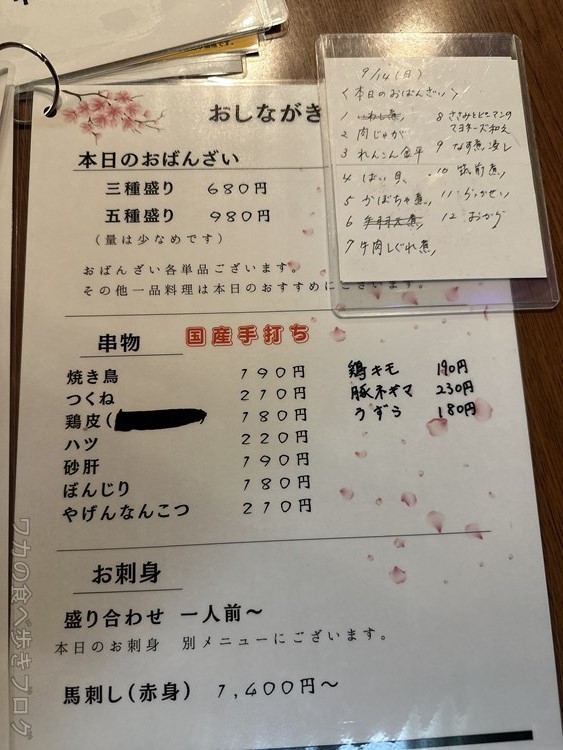 おしながき
本日のおばんざい
三種盛り 680円
五種盛り 980円
(量は少なめです)
おばんざい各単品ございます。
その他一品料理は本日のおすすめにございます。
9/14(日)
<本日のおばんざい>
1 いわし煮
2 肉じゃが
3 れんこん金平
4 ばい貝
5 かぼちゃ煮
6
7 牛肉しぐれ煮
8 ささみとピーマンの
マヨネーズ和え
9 なす煮浸し
10 筑前煮
11
12 おから
串物 国産手打ち
焼き鳥 190円
つくね 210円
鶏皮(
180円
ハツ 220円
砂肝 190円
ぼんじり 180円
やげんなんこつ 210円
鶏キモ 190円
豚ネギマ 230円
うずら 180円
お刺身
盛り合わせ 一人前～
本日のお刺身 別メニューにございます。
馬刺し(赤身) 1,400円～
ワカの食べ歩きブログ